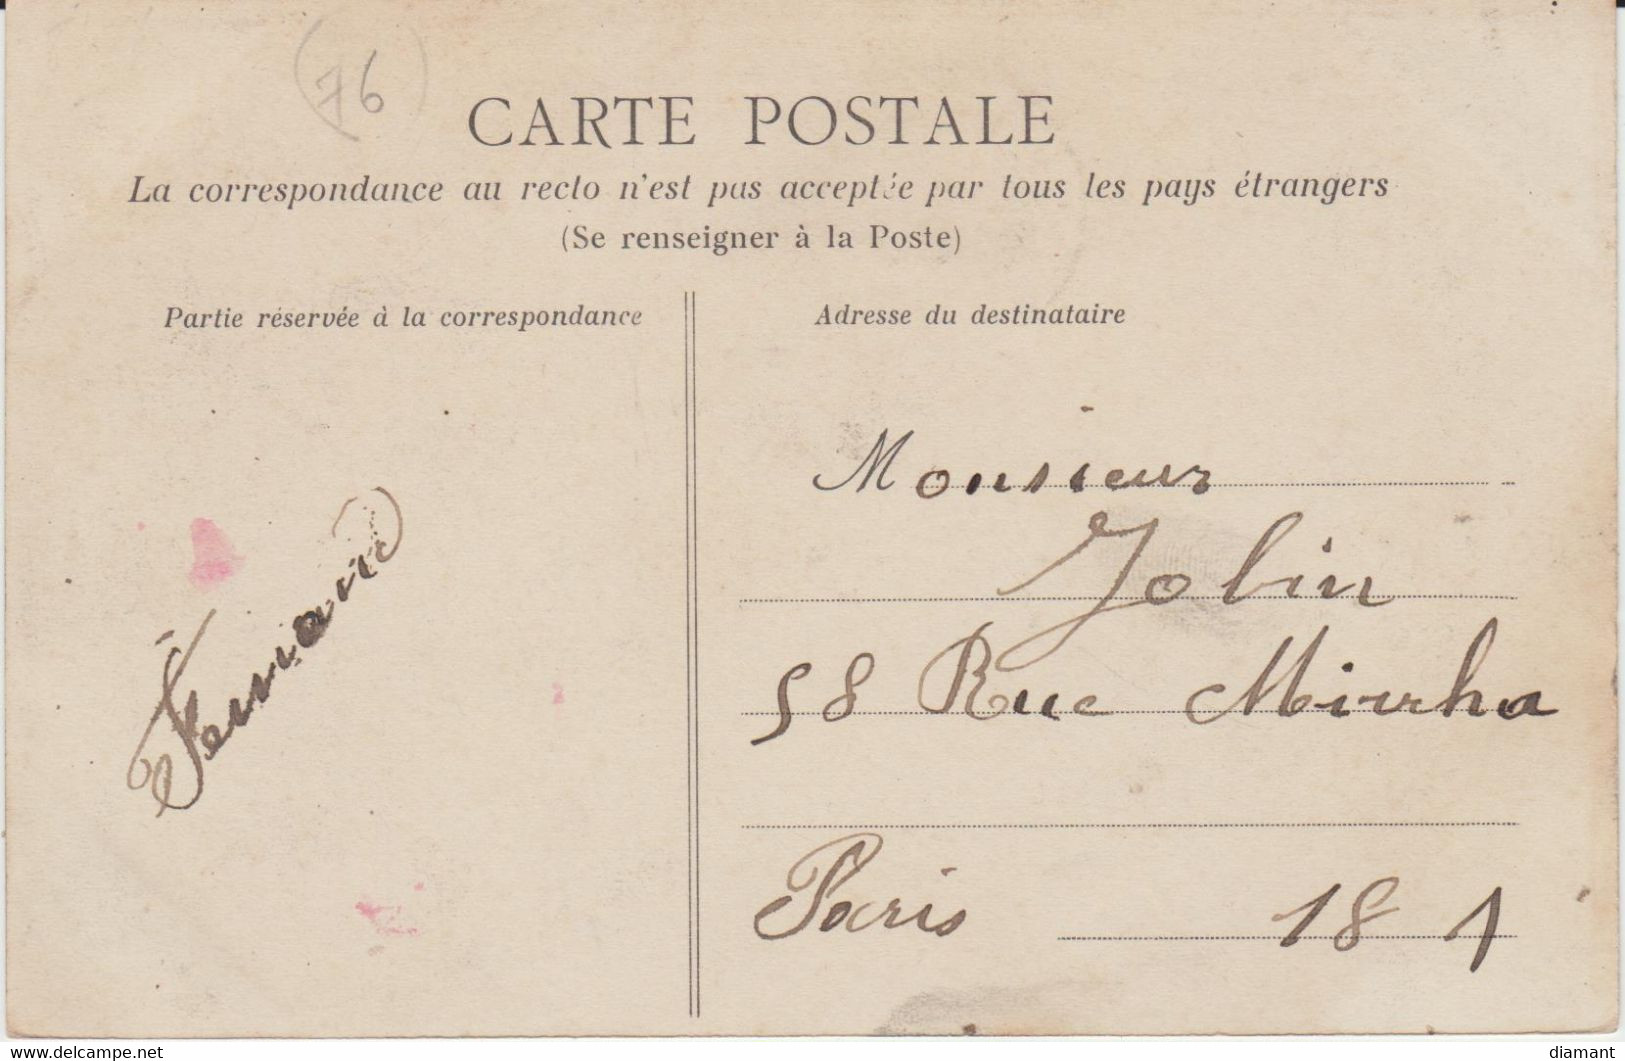 (76)
CARTE POSTALE
La correspondance au recto n'est pas acceptée par tous les pays étrangers
(Se renseigner à la Poste)
Partie réservée à la correspondance
Adresse du destinataire
Fernand
Monsieur
Jolin
58 Rue Mirrha
Paris 18 1
www.delcampe.net
diamant